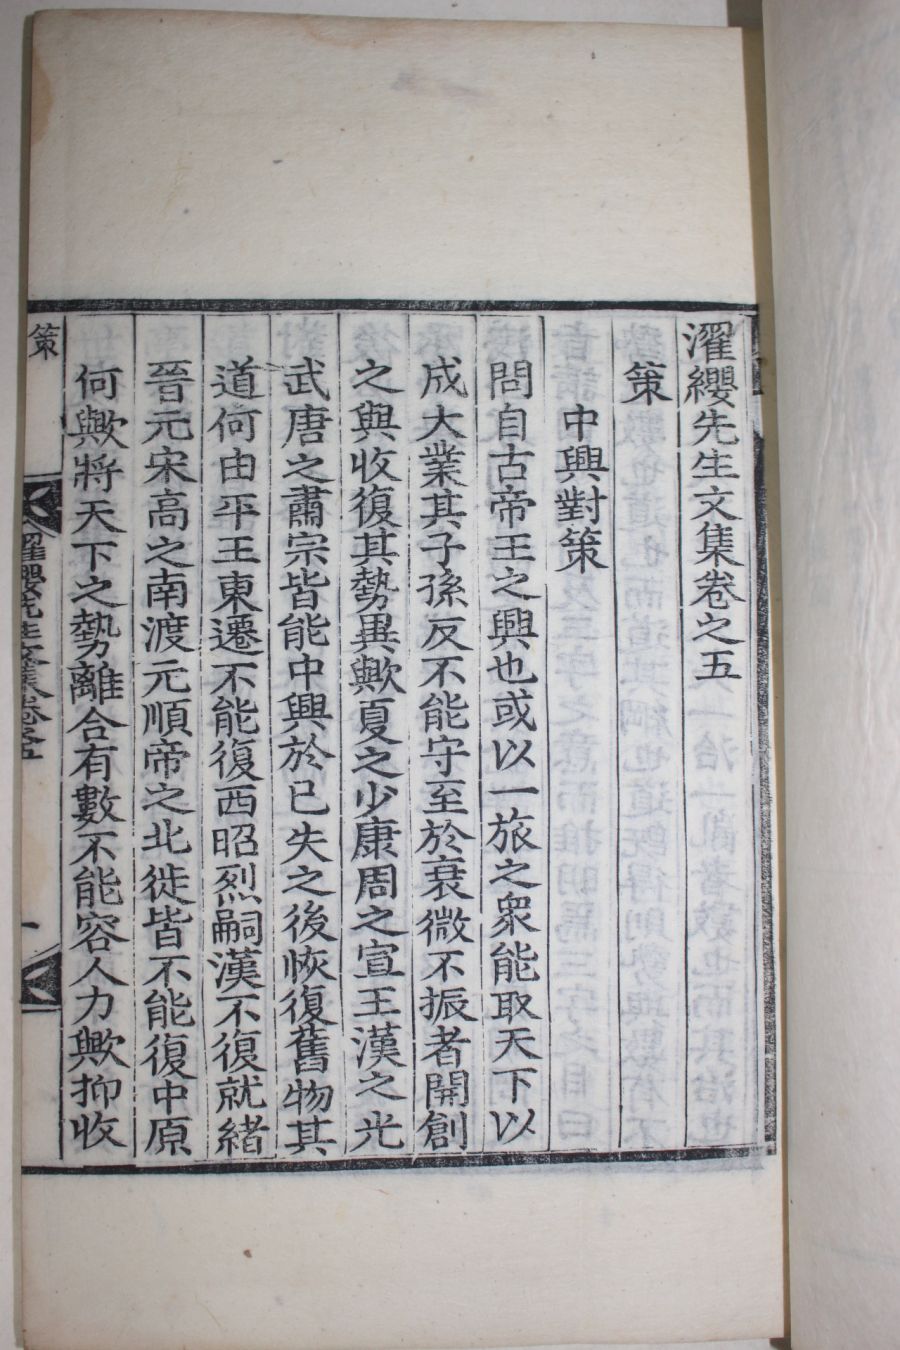 濯纓先生文集卷之五
策
中興對策
問自古帝王之興也或以一旅之衆能取天下以
成大業其子孫反不能守至於衰微不振者開創
之與收復其勢異歟夏之少康周之宣王漢之光
武唐之肅宗皆能中興於已失之後恢復舊物其
道何由平王東遷不能復西昭烈嗣漢不復就緒
晉元宋高之南渡元順帝之北徙皆不能復中原
何歟將天下之勢離合有數不能容人力歟抑收
策
濯纓先生文集卷之五
一